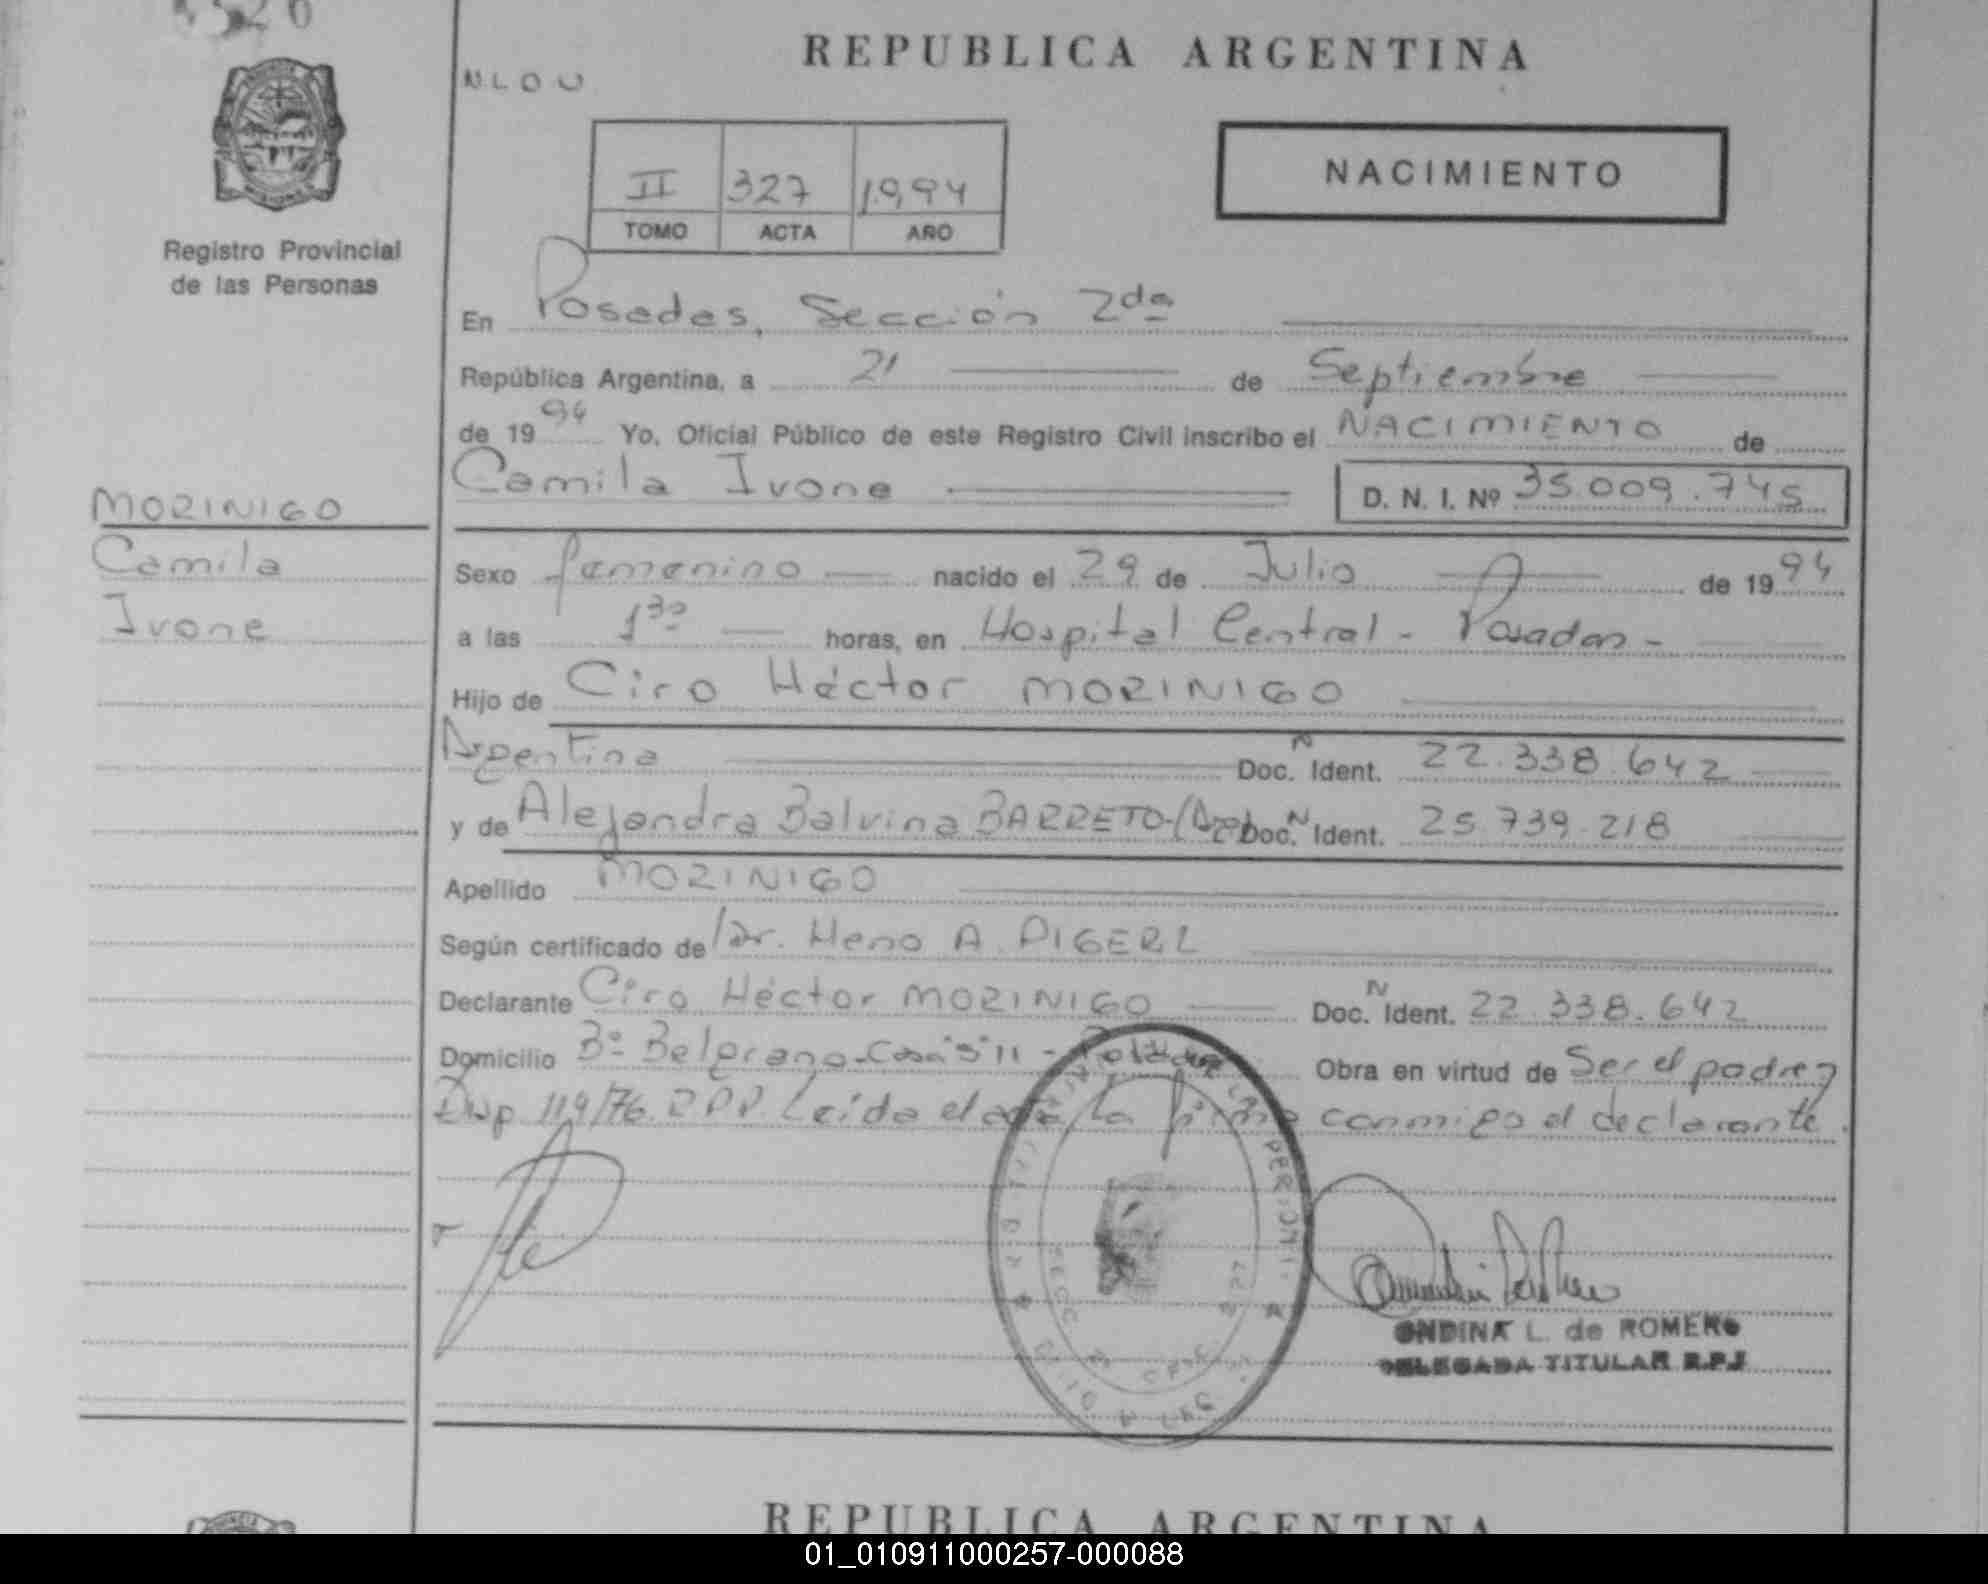 REPUBLICA ARGENTINA
N L O U
NACIMIENTO
II 327 1.994
TOMO ACTA AÑO
Registro Provincial
de las Personas
En Posadas, Sección 2da
República Argentina, a 21 de Septiembre
de 1994 Yo, Oficial Público de este Registro Civil inscribo el NACIMIENTO de
Camila Ivone D. N. I. Nº 35.009.745
MORINIGO
Camila
Ivone
Sexo femenino nacido el 29 de Julio de 1994
a las 1³⁰ horas, en Hospital Central - Posadas -
Hijo de Ciro Héctor MORINIGO
Argentina Doc. N Ident. 22.338.642
y de Alejandra Balvina BARRETO-(Arg) Doc. N Ident. 25.739.218
Apellido MORINIGO
Según certificado de Dr. A.
Declarante Ciro Héctor MORINIGO Doc. N Ident. 22.338.642
Domicilio Bº Belgrano-Casa "5" 11 - Posadas Obra en virtud de Ser el padre y
Disp. 119/76. R.P.P. Leída el acta la firma conmigo el declarante.
ONDINA L. de ROMERO
DELEGADA TITULAR R.P.P
REPUBLICA ARGENTINA
01_010911000257-000088